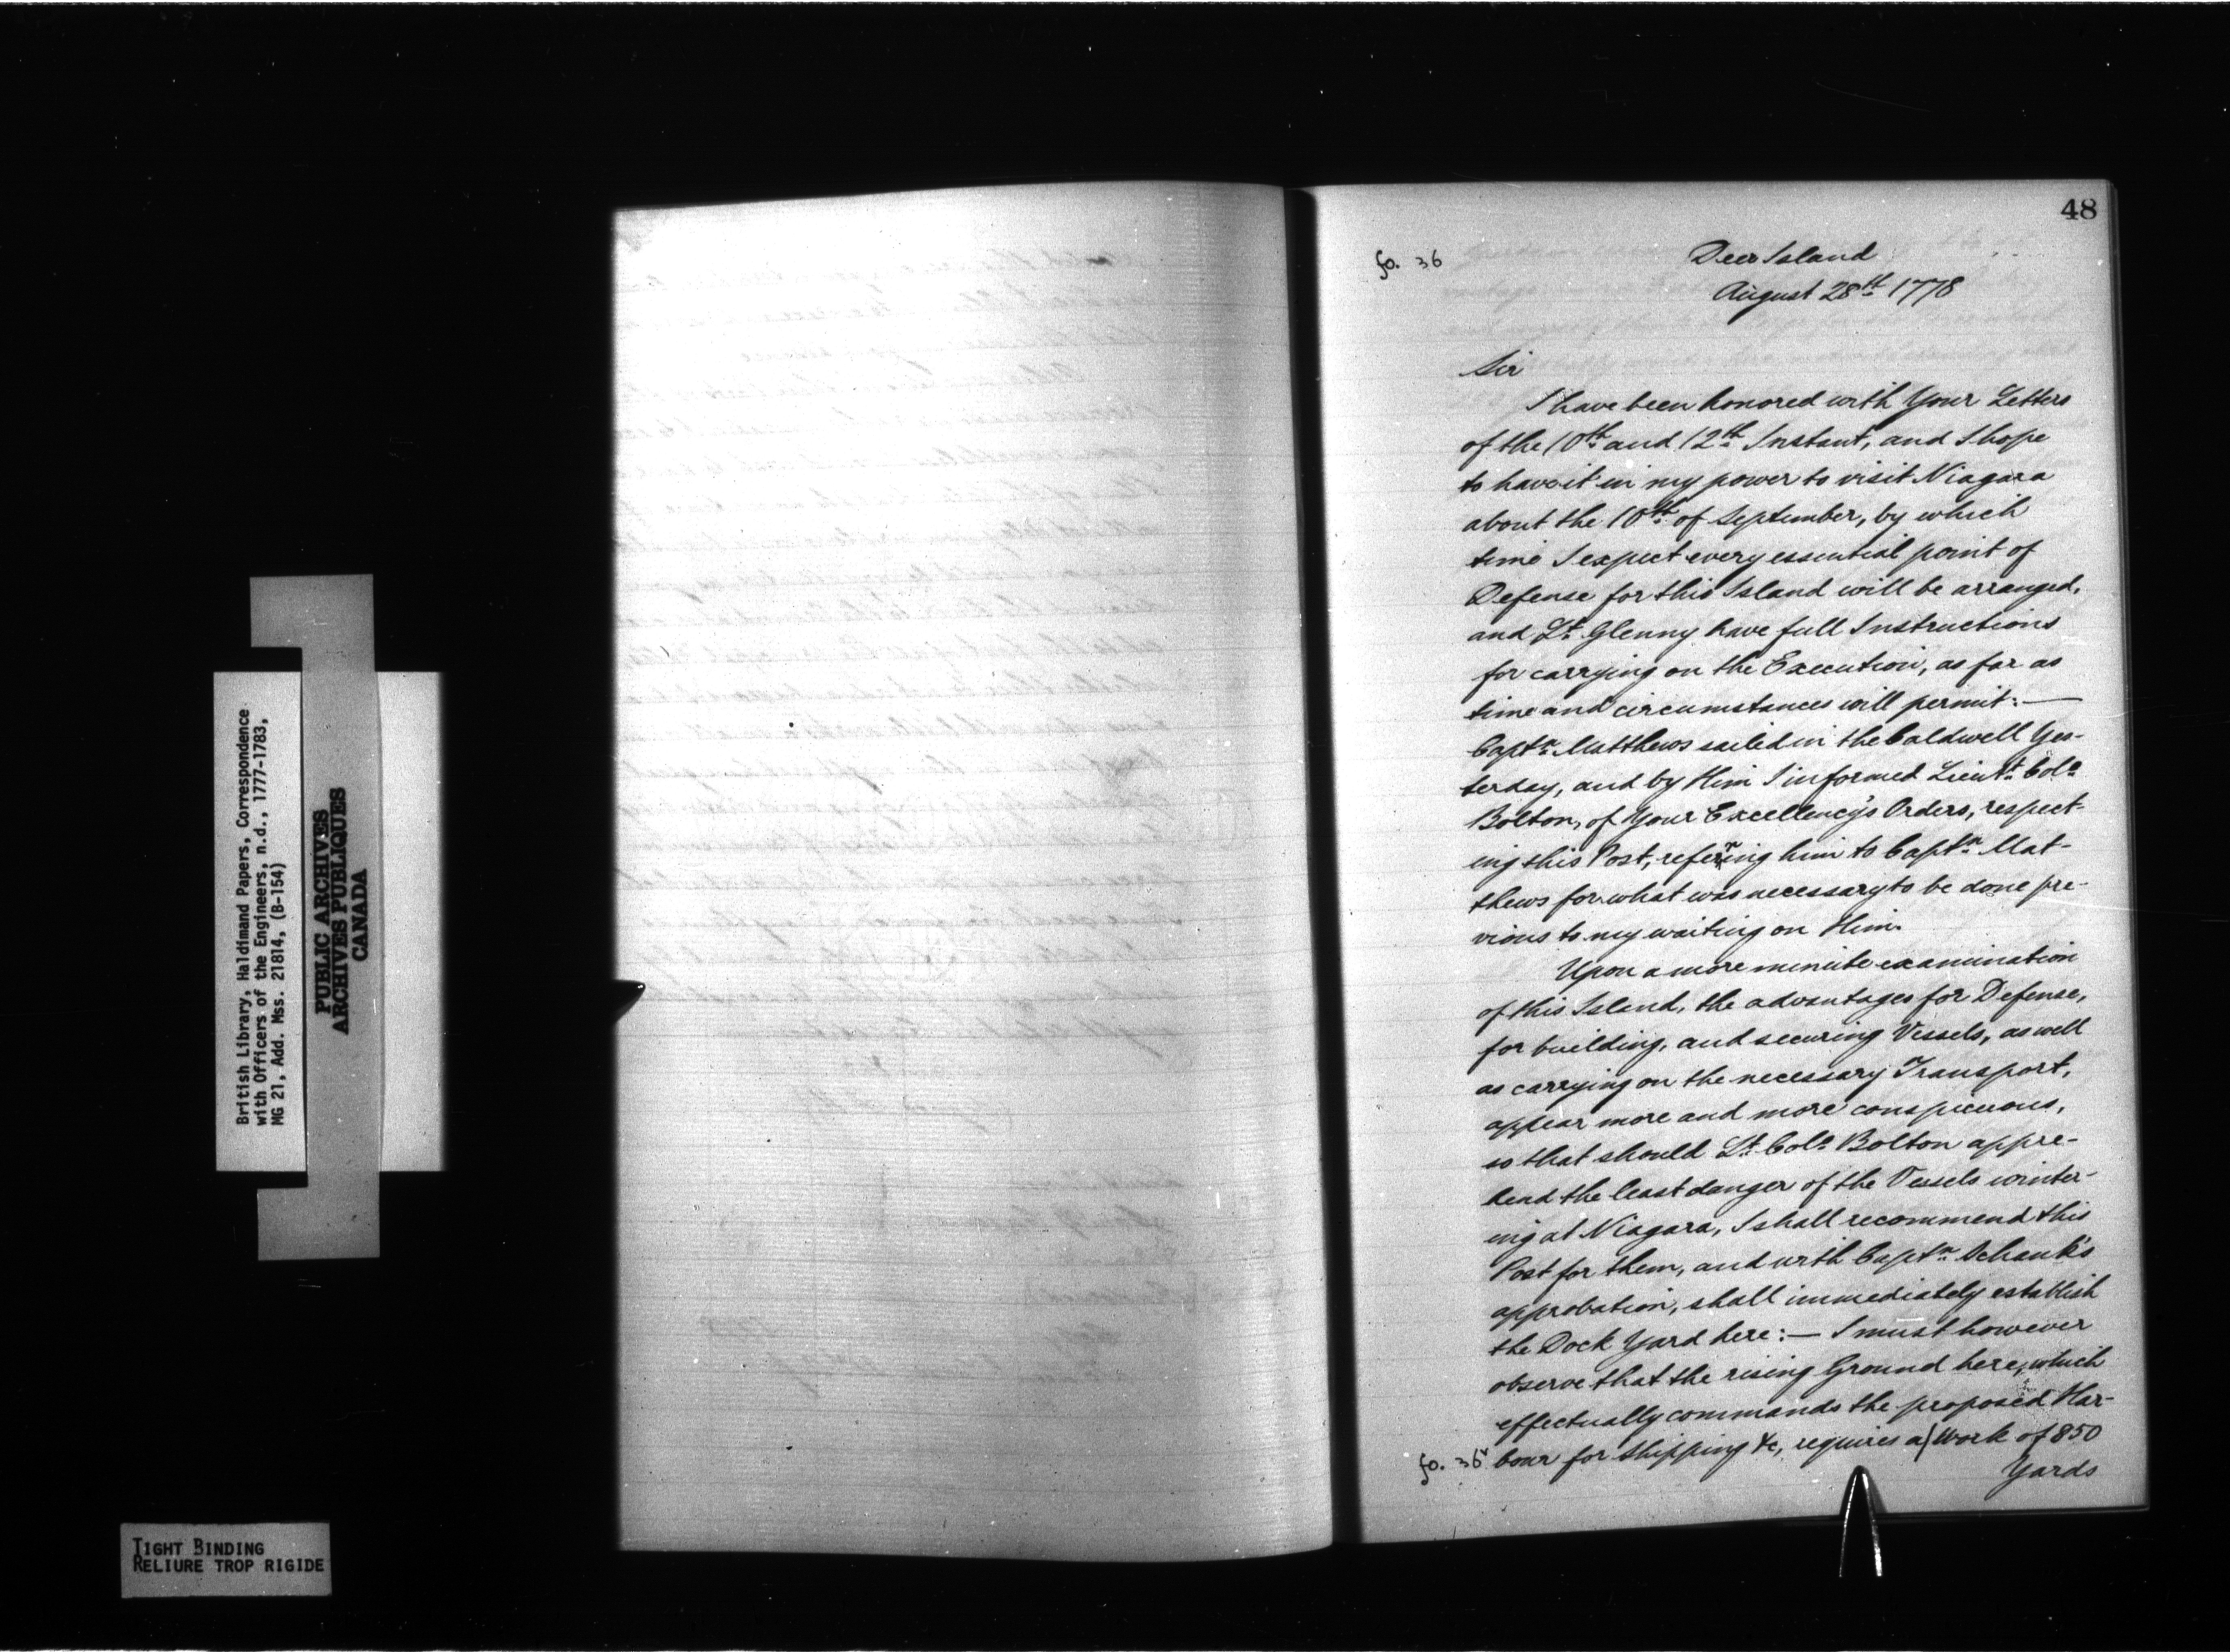 48
fo. 36
Deer Island
August 28th 1778
Sir
I have been honored with Your Letters
of the 10th and 12th Instant, and I hope
to have it in my power to visit Niagara
about the 10th of September, by which
time I expect every essential point of
Defense for this Island will be arranged,
and Lt. Glenny have full Instructions
for carrying on the Execution, as far as
time and circumstances will permit:—
Captn. Matthews sailed in the Caldwell Yes-
terday, and by Him I informed Lieut. Colo.
Bolton, of Your Excellency's Orders, respect-
ing this Post, referring him to Captn. Mat-
thews for what was necessary to be done pre-
vious to my waiting on Him.
Upon a more minute examination
of this Island, the advantages for Defense,
for building, and securing Vessels, as well
as carrying on the necessary Transport,
appear more and more conspicuous,
so that should Lt. Colo. Bolton appre-
hend the least danger of the Vessels winter-
ing at Niagara, I shall recommend this
Post for them, and with Captn. Schank's
approbation, shall immediately establish
the Dock Yard here:— I must however
observe that the rising Ground here, which
effectually commands the proposed Har-
fo. 36v bour for Shipping &c, requires a/ Work of 850
Yards
British Library, Haldimand Papers, Correspondence
with Officers of the Engineers, n.d., 1777-1783,
MG 21, Add. Mss. 21814, (B-154)
PUBLIC ARCHIVES
ARCHIVES PUBLIQUES
CANADA
TIGHT BINDING
RELIURE TROP RIGIDE